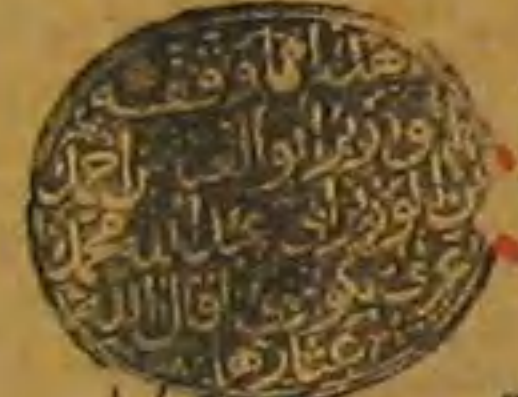 هذا مما وقفه
الوزير ابو العباس احمد
بن الوزير ابى عبد الله محمد
عرف بكوپرى اقال الله
عثارهما